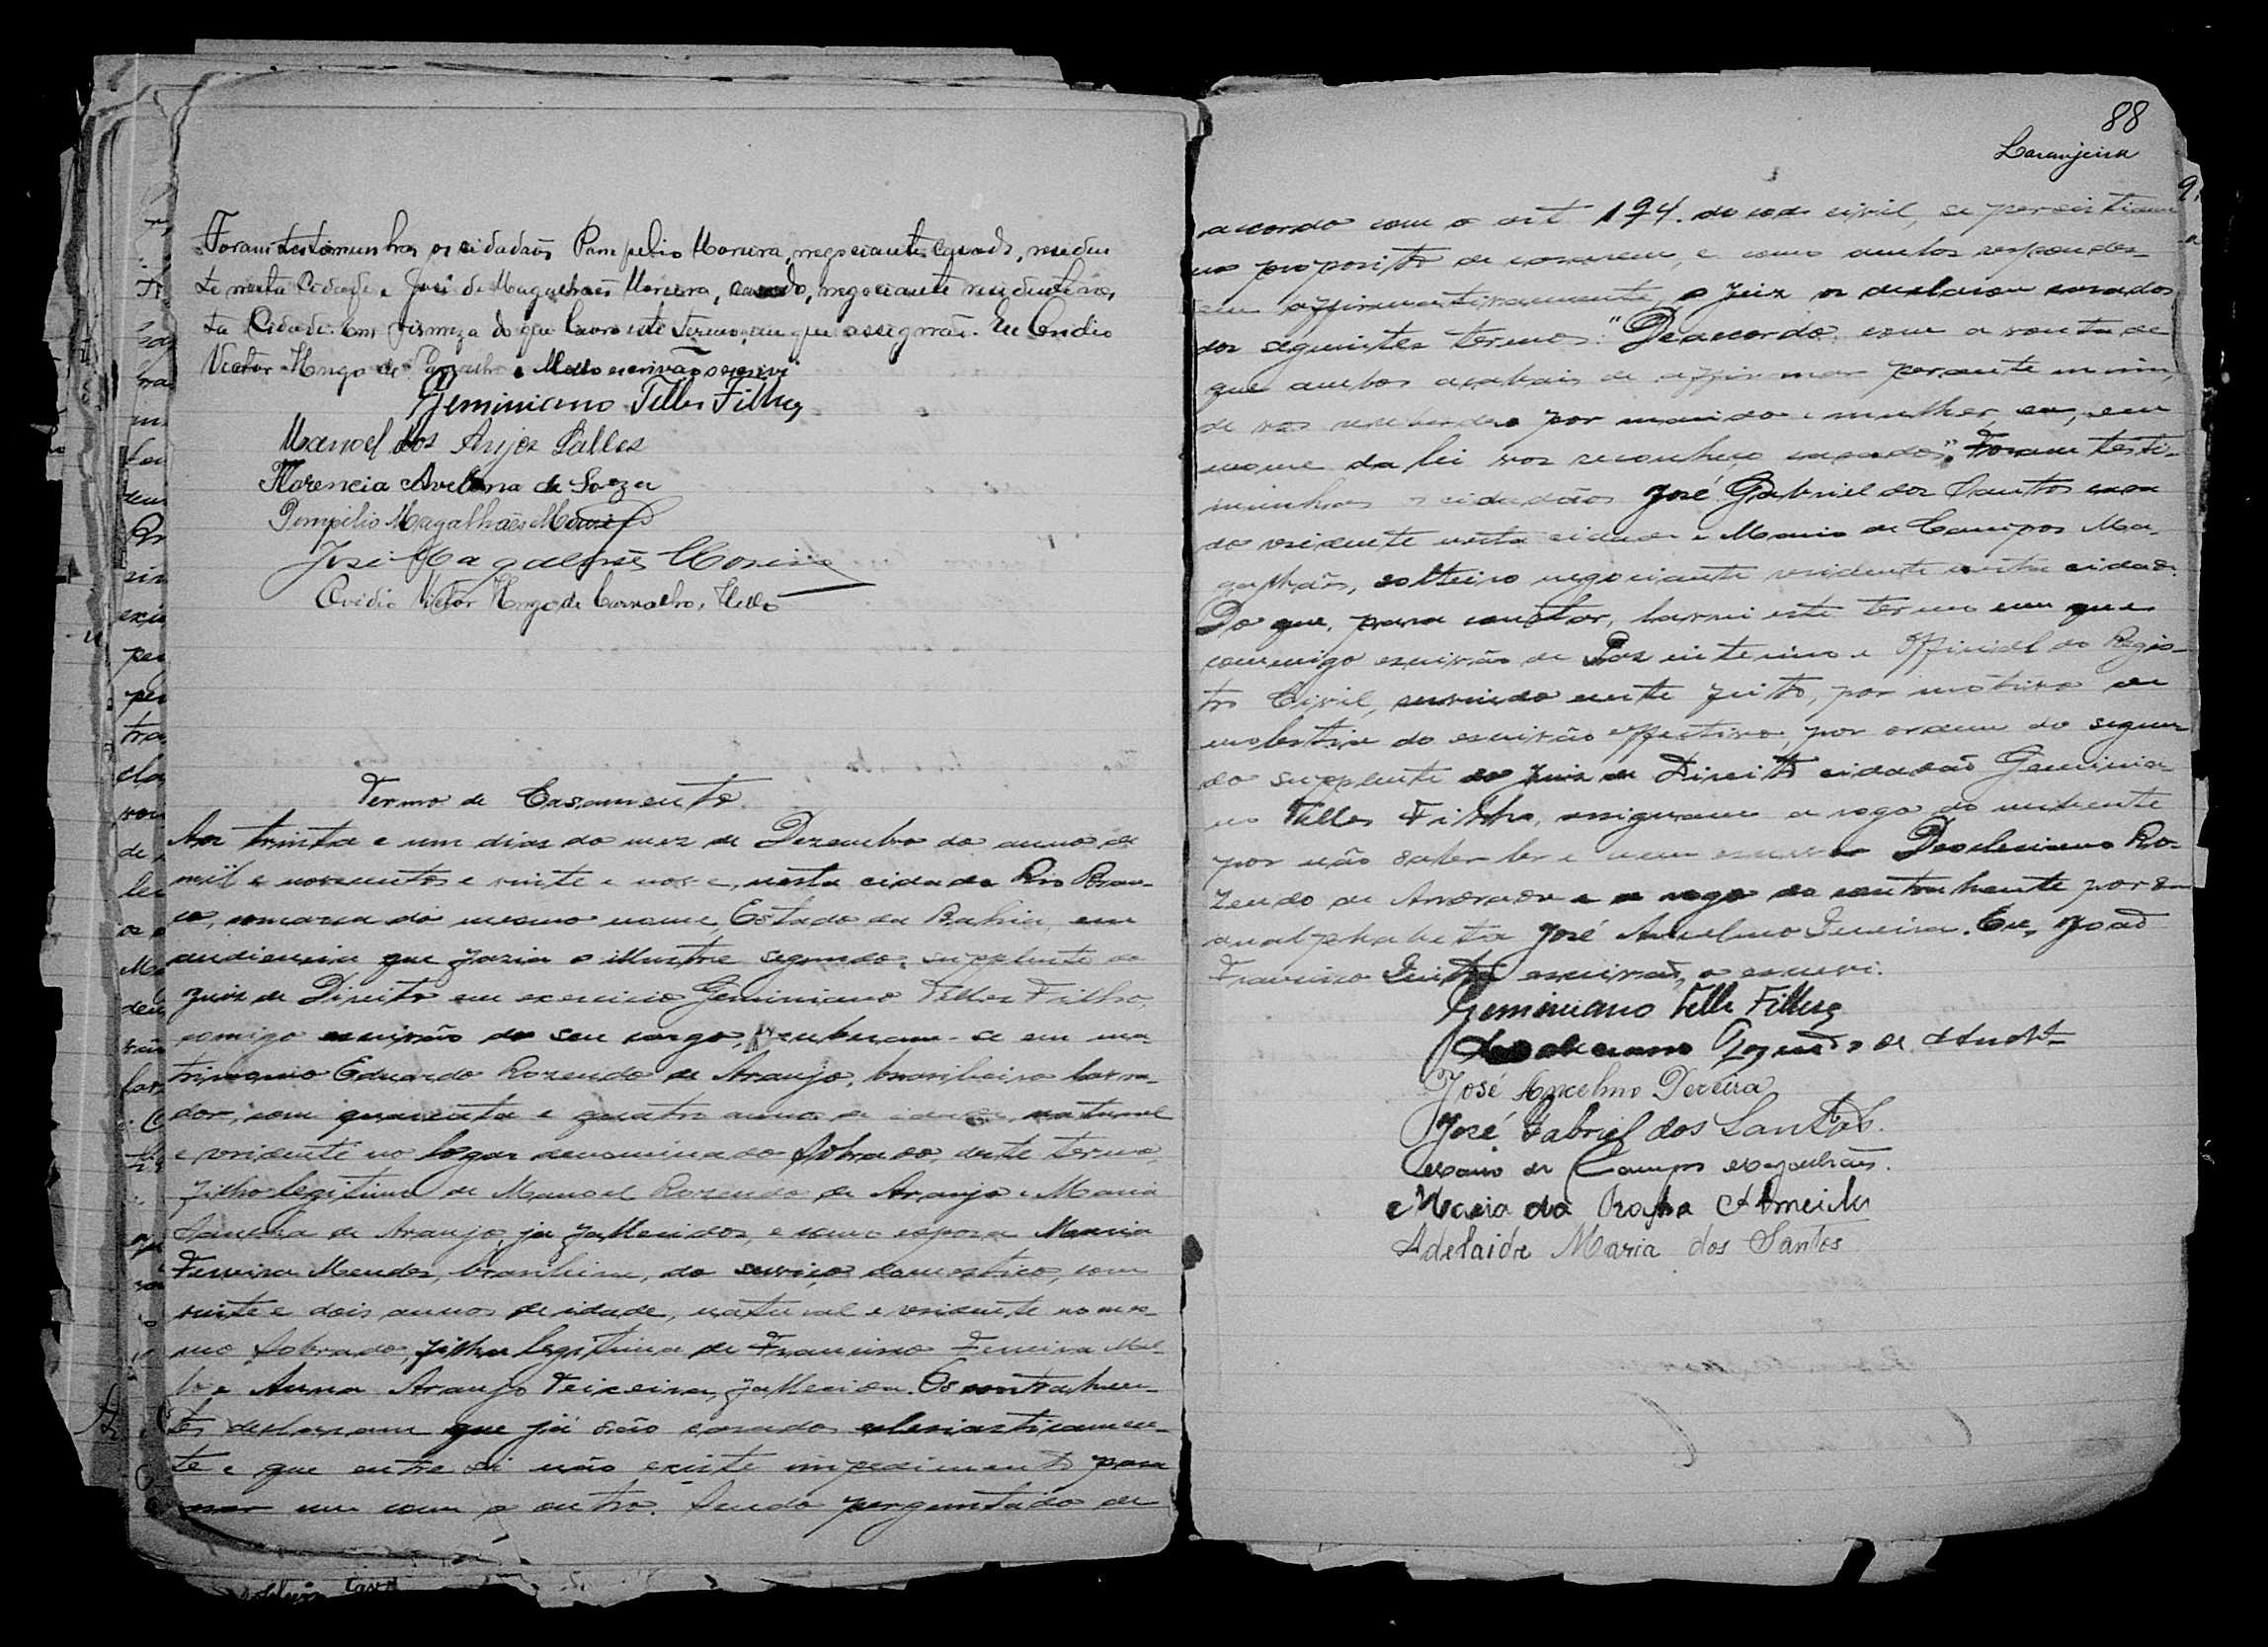 Foram testemunhas os cidadãos Pompelio Moreira, negociante, casado, residen
te nesta Cidade e José de Magalhães Moreira, casado, negociante residente nes
ta Cidade. Em firmeza do que lavro este termo, em que assignão. Eu Ovidio
Victor Hugo de Carvalho e Mello escrivão o escrevi
Geminiano Telles Filho
Manoel dos Anjos Salles
Florencia Avelina de Souza
Pompilio Magalhães Moreira
José Magalhães Moreira
Ovidio Victor Hugo de Carvalho e Mello
Termo de Casamento.
Aos trinta e um dias do mez de Dezembro do anno de
mil e novecentos e vinte e nove, nesta cidade Rio Bran-
co, comarca do mesmo nome, Estado da Bahia, em
audiencia que fazia o illustre segundo supplente do
Juiz de Direito em exercicio Geminiano Telles Filho,
comigo escrivão do seu cargo, receberam-se em ma-
trimonio Eduardo Rozendo de Araujo, brasileiro lavra-
dor, com quarenta e quatro annos de idade, natural
e residente no logar denominado Sobrado, deste termo,
filho legitimo de Manoel Rozendo de Araujo e Maria
de Araujo, ja fallecidos, e como esposa Maria
Ferreira Mendes, brasileira, do serviço domestico, com
vinte e dois annos de idade, natural e residente no mes-
mo Sobrado, filha legitima de Francisco Ferreira Mel-
lo e Anna Araujo Teixeira, fallecida. Os contrahen-
tes declararam que já são casados eclesiasticamen-
te e que entre si não existe impedimento para
casar um com o outro. Sendo perguntado de
88
Laranjeira
accordo com o art 194. do cod. civil, se persistiam
no proposito de casarem, e como ambos respondes-
sem affirmativamente, o Juiz os declarou casados
dos seguintes termos: "De accordo com a vontade
que ambos acabais de affirmar perante mim,
de vos receberdes por marido e mulher, eu, em
nome da lei vos reconheço casados". Foram teste-
munhas os cidadãos José Gabriel dos Santos casa
do residente nesta cidade e Mario de Campos Ma-
galhães, solteiro negociante residente nesta cidade.
Do que, para constar, lavrei este termo em que
commigo escrivão de Paz interino e Official do Regis-
tro Civil, servindo neste feito, por motivo de
molestia do escrivão effectivo, por ordem do segun
do supplente do Juiz de Direito cidadão Geminia-
no Telles Filho, assignam a rogo do nubente
por não saber ler e nem escrever Deocleciano Ro-
zendo de Andrade e a rogo da contrahente por ser
analphabeta José Anselmo Pereira. Eu, João
Francisco escrivão, o escrevi.
Geminiano Telles Filho
Deocleciano Rozendo de Andre
José Ancelmo Pereira
José Gabriel dos Santos.
Mario de Campos Magalhães.
Maria da Rocha Almeida
Adelaide Maria dos Santos